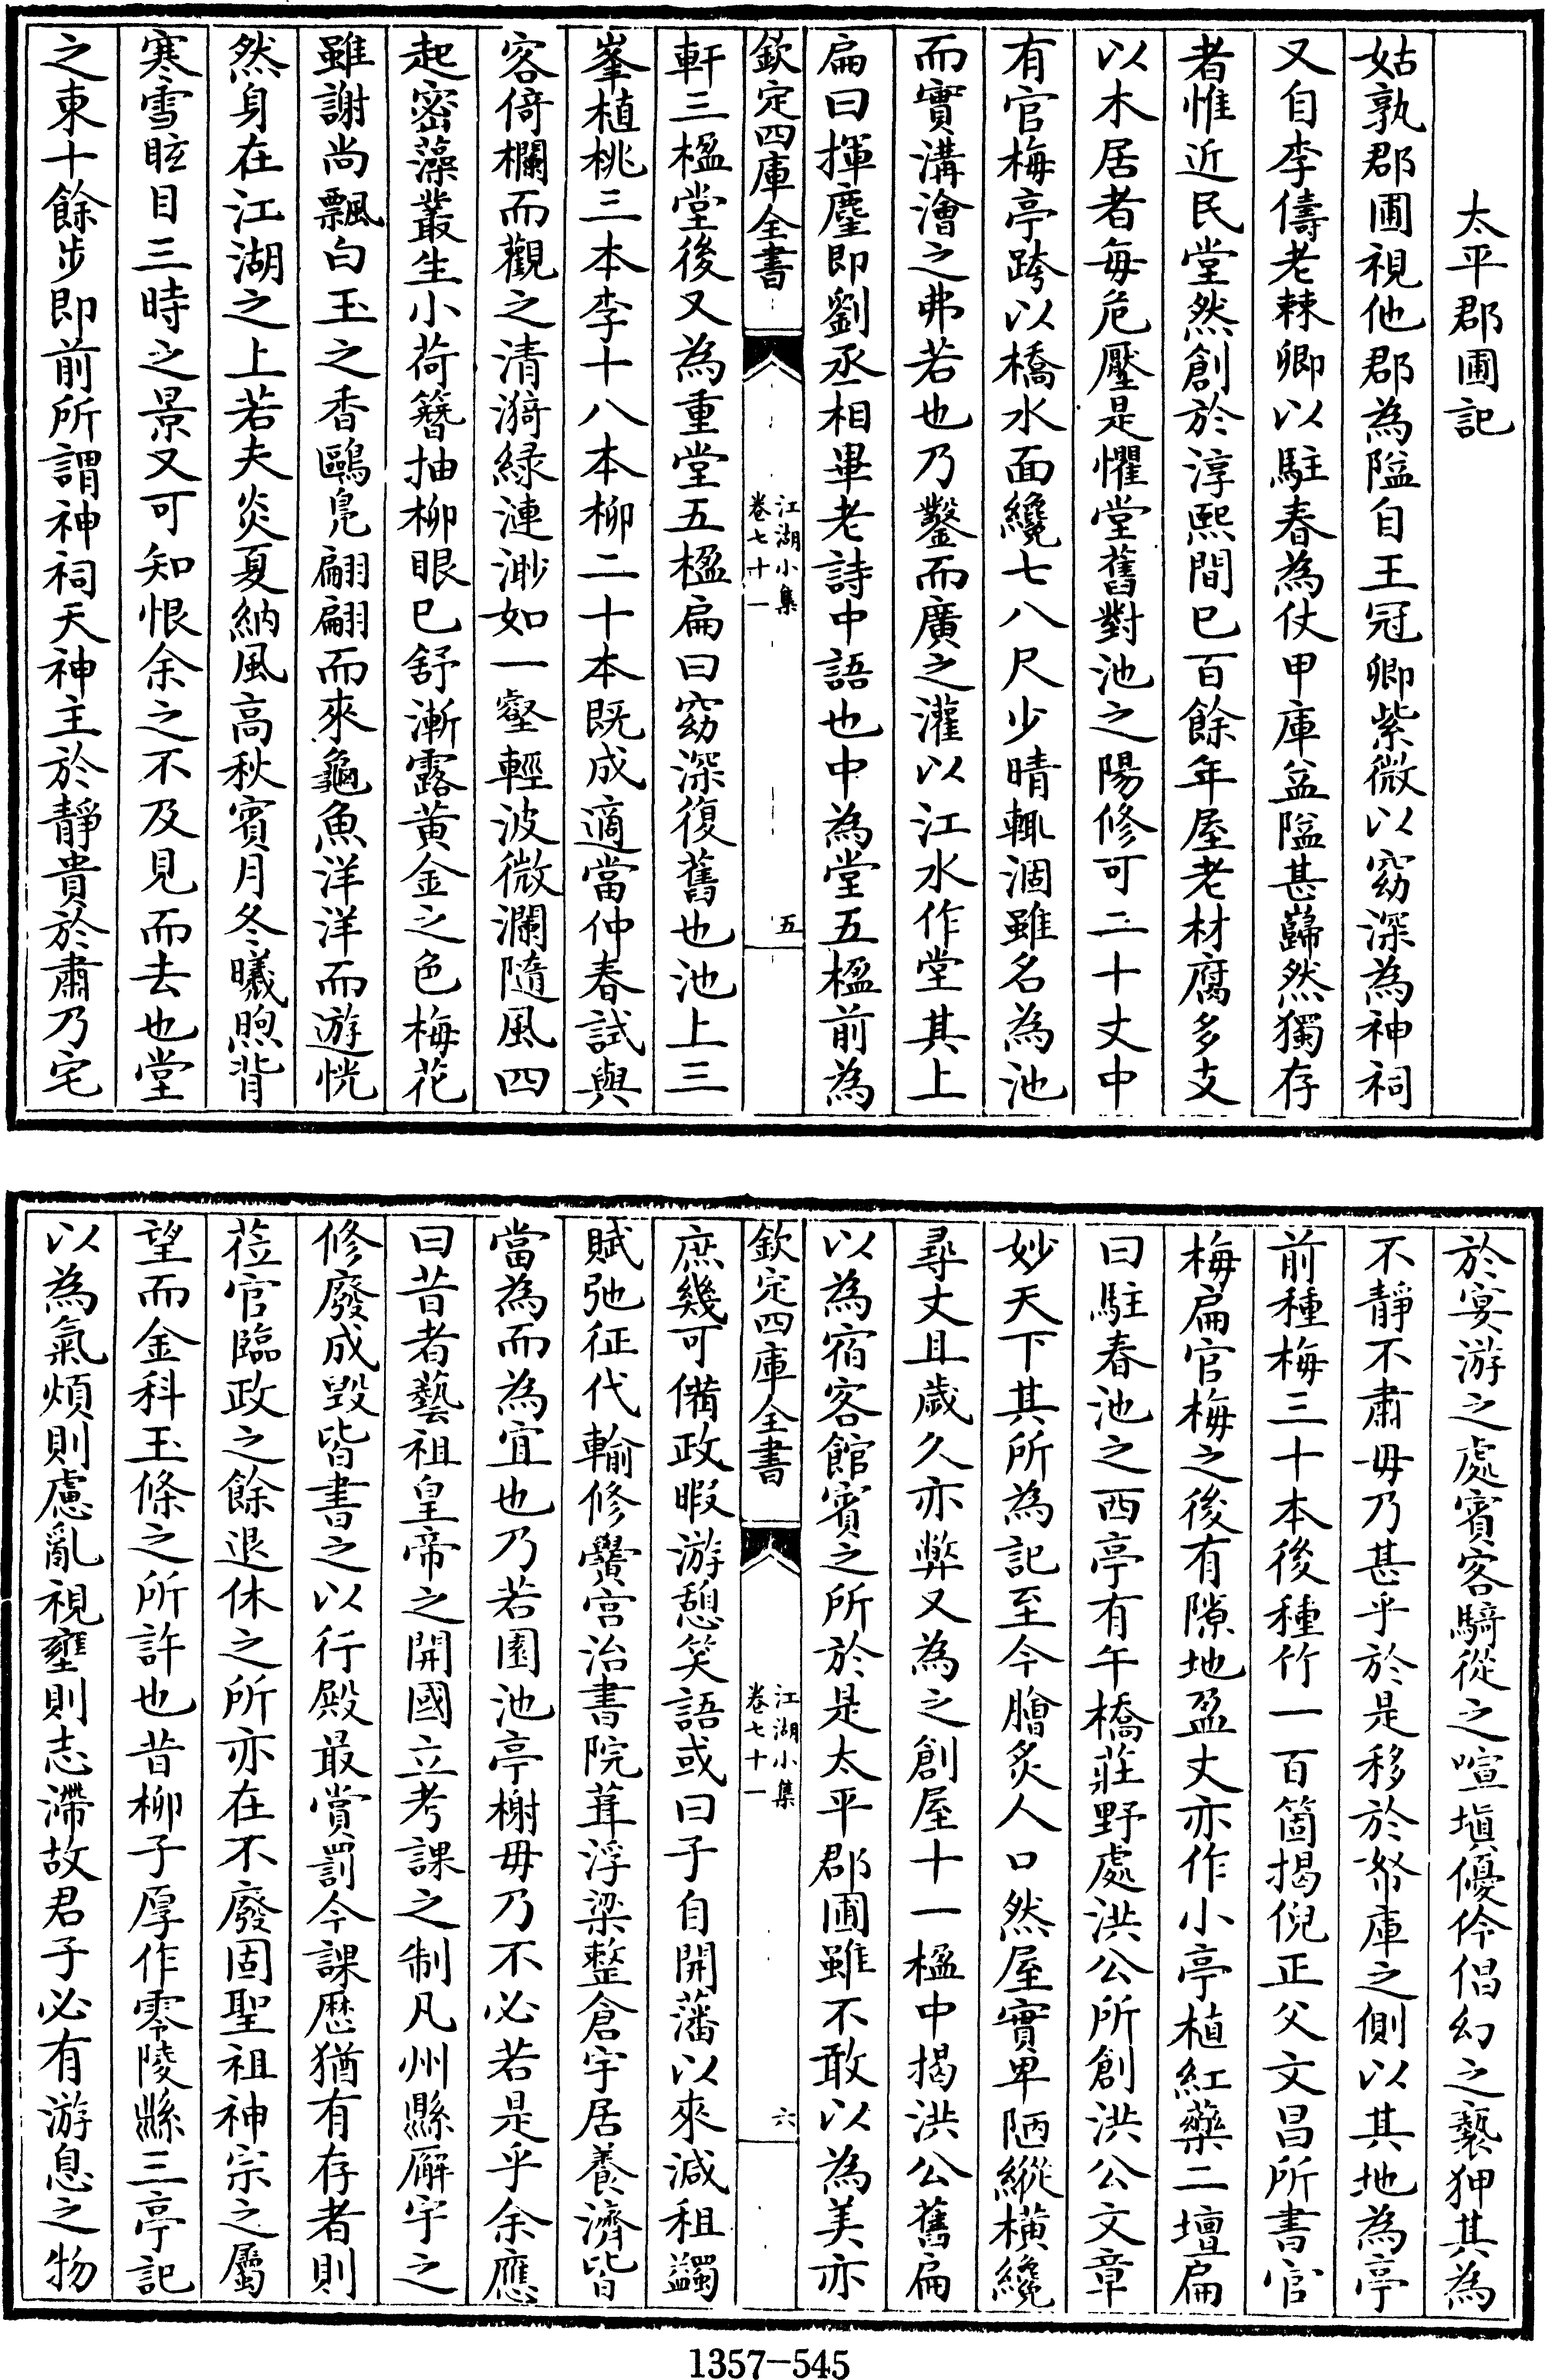 太平郡圃記
姑孰郡圃視他郡為隘自王冠卿紫微以窈深為神祠
又自李儔老棘卿以駐春為仗甲庫盆隘甚巋然獨存
者惟近民堂然創於淳熙間已百餘年屋老材腐多支
以木居者每危壓是懼堂舊對池之陽修可二十丈中
有官梅亭跨以橋水面纔七八尺少晴輒涸雖名為池
而實溝澮之弗若也乃鑿而廣之灌以江水作堂其上
扁曰揮麈即劉丞相畢老詩中語也中為堂五楹前為
欽定四庫全書
江湖小集
卷七十一
五
軒三楹堂後又為重堂五楹扁曰窈深復舊也池上三
峯植桃三本李十八本柳二十本既成適當仲春試與
客倚欄而觀之清漪綠漣渺如一壑輕波微瀾隨風四
起密藻叢生小荷簪抽柳眼已舒漸露黄金之色梅花
雖謝尚飄白玉之香鷗鳬翩翩而來龜魚洋洋而遊恍
然身在江湖之上若夫炎夏納風高秋賓月冬曦煦背
寒雪眩目三時之景又可知恨余之不及見而去也堂
之東十餘步即前所謂神祠天神主於靜貴於肅乃宅
於宴游之處賓客騎從之喧塡優伶倡幻之褻狎其為
不靜不肅毋乃甚乎於是移於帑庫之側以其地為亭
前種梅三十本後種竹一百箇揭倪正父文昌所書官
梅扁官梅之後有隙地盈丈亦作小亭植紅藥二壇扁
曰駐春池之西亭有午橋莊野處洪公所創洪公文章
妙天下其所為記至今膾炙人口然屋實卑陋縱橫纔
尋丈且歲久亦弊又為之創屋十一楹中揭洪公舊扁
以為宿客館賓之所於是太平郡圃雖不敢以為美亦
欽定四庫全書
江湖小集
卷七十一
六
庶幾可備政暇游憩笑語或曰子自開藩以來減租蠲
賦弛征代輸修黌宮治書院葺浮梁整倉宇居養濟皆
當為而為宜也乃若園池亭榭毋乃不必若是乎余應
曰昔者藝祖皇帝之開國立考課之制凡州縣廨宇之
修廢成毀皆書之以行殿最賞罰今課歷猶有存者則
莅官臨政之餘退休之所亦在不廢固聖祖神宗之屬
望而金科玉條之所許也昔柳子厚作零陵縣三亭記
以為氣煩則慮亂視壅則志滯故君子必有游息之物
1357—545